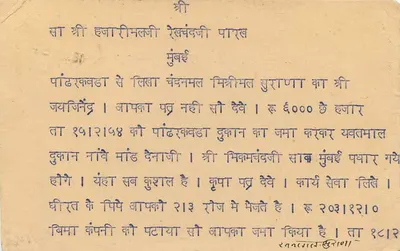 श्री
सा श्री हजारीमलजी रेखचंदजी पारख
मुंबई
पांढरकवडा से लिखा चंदनमल मिश्रीमल सुराणा का श्री
जयजिनेंद्र । आपका पत्र नही सो देवे । रू ६००० छे हजार
ता १५/२/५४ को पांढरकवडा दुकान का जमा करकर यवतमाल
दुकान नांवे मांड देनाजी । श्री भिकमचंदजी साब मुंबई पधार गये
होंगे । यंहा सब कुशल है । कृपा पत्र देवे । कार्य सेवा लिखे ।
घीरत के पिपे आपको २/३ रोज मे भेजते है । रू २०३/१२/०
विमा कंपनी को पटाया सो आपका जमा किया है । ता १८/२